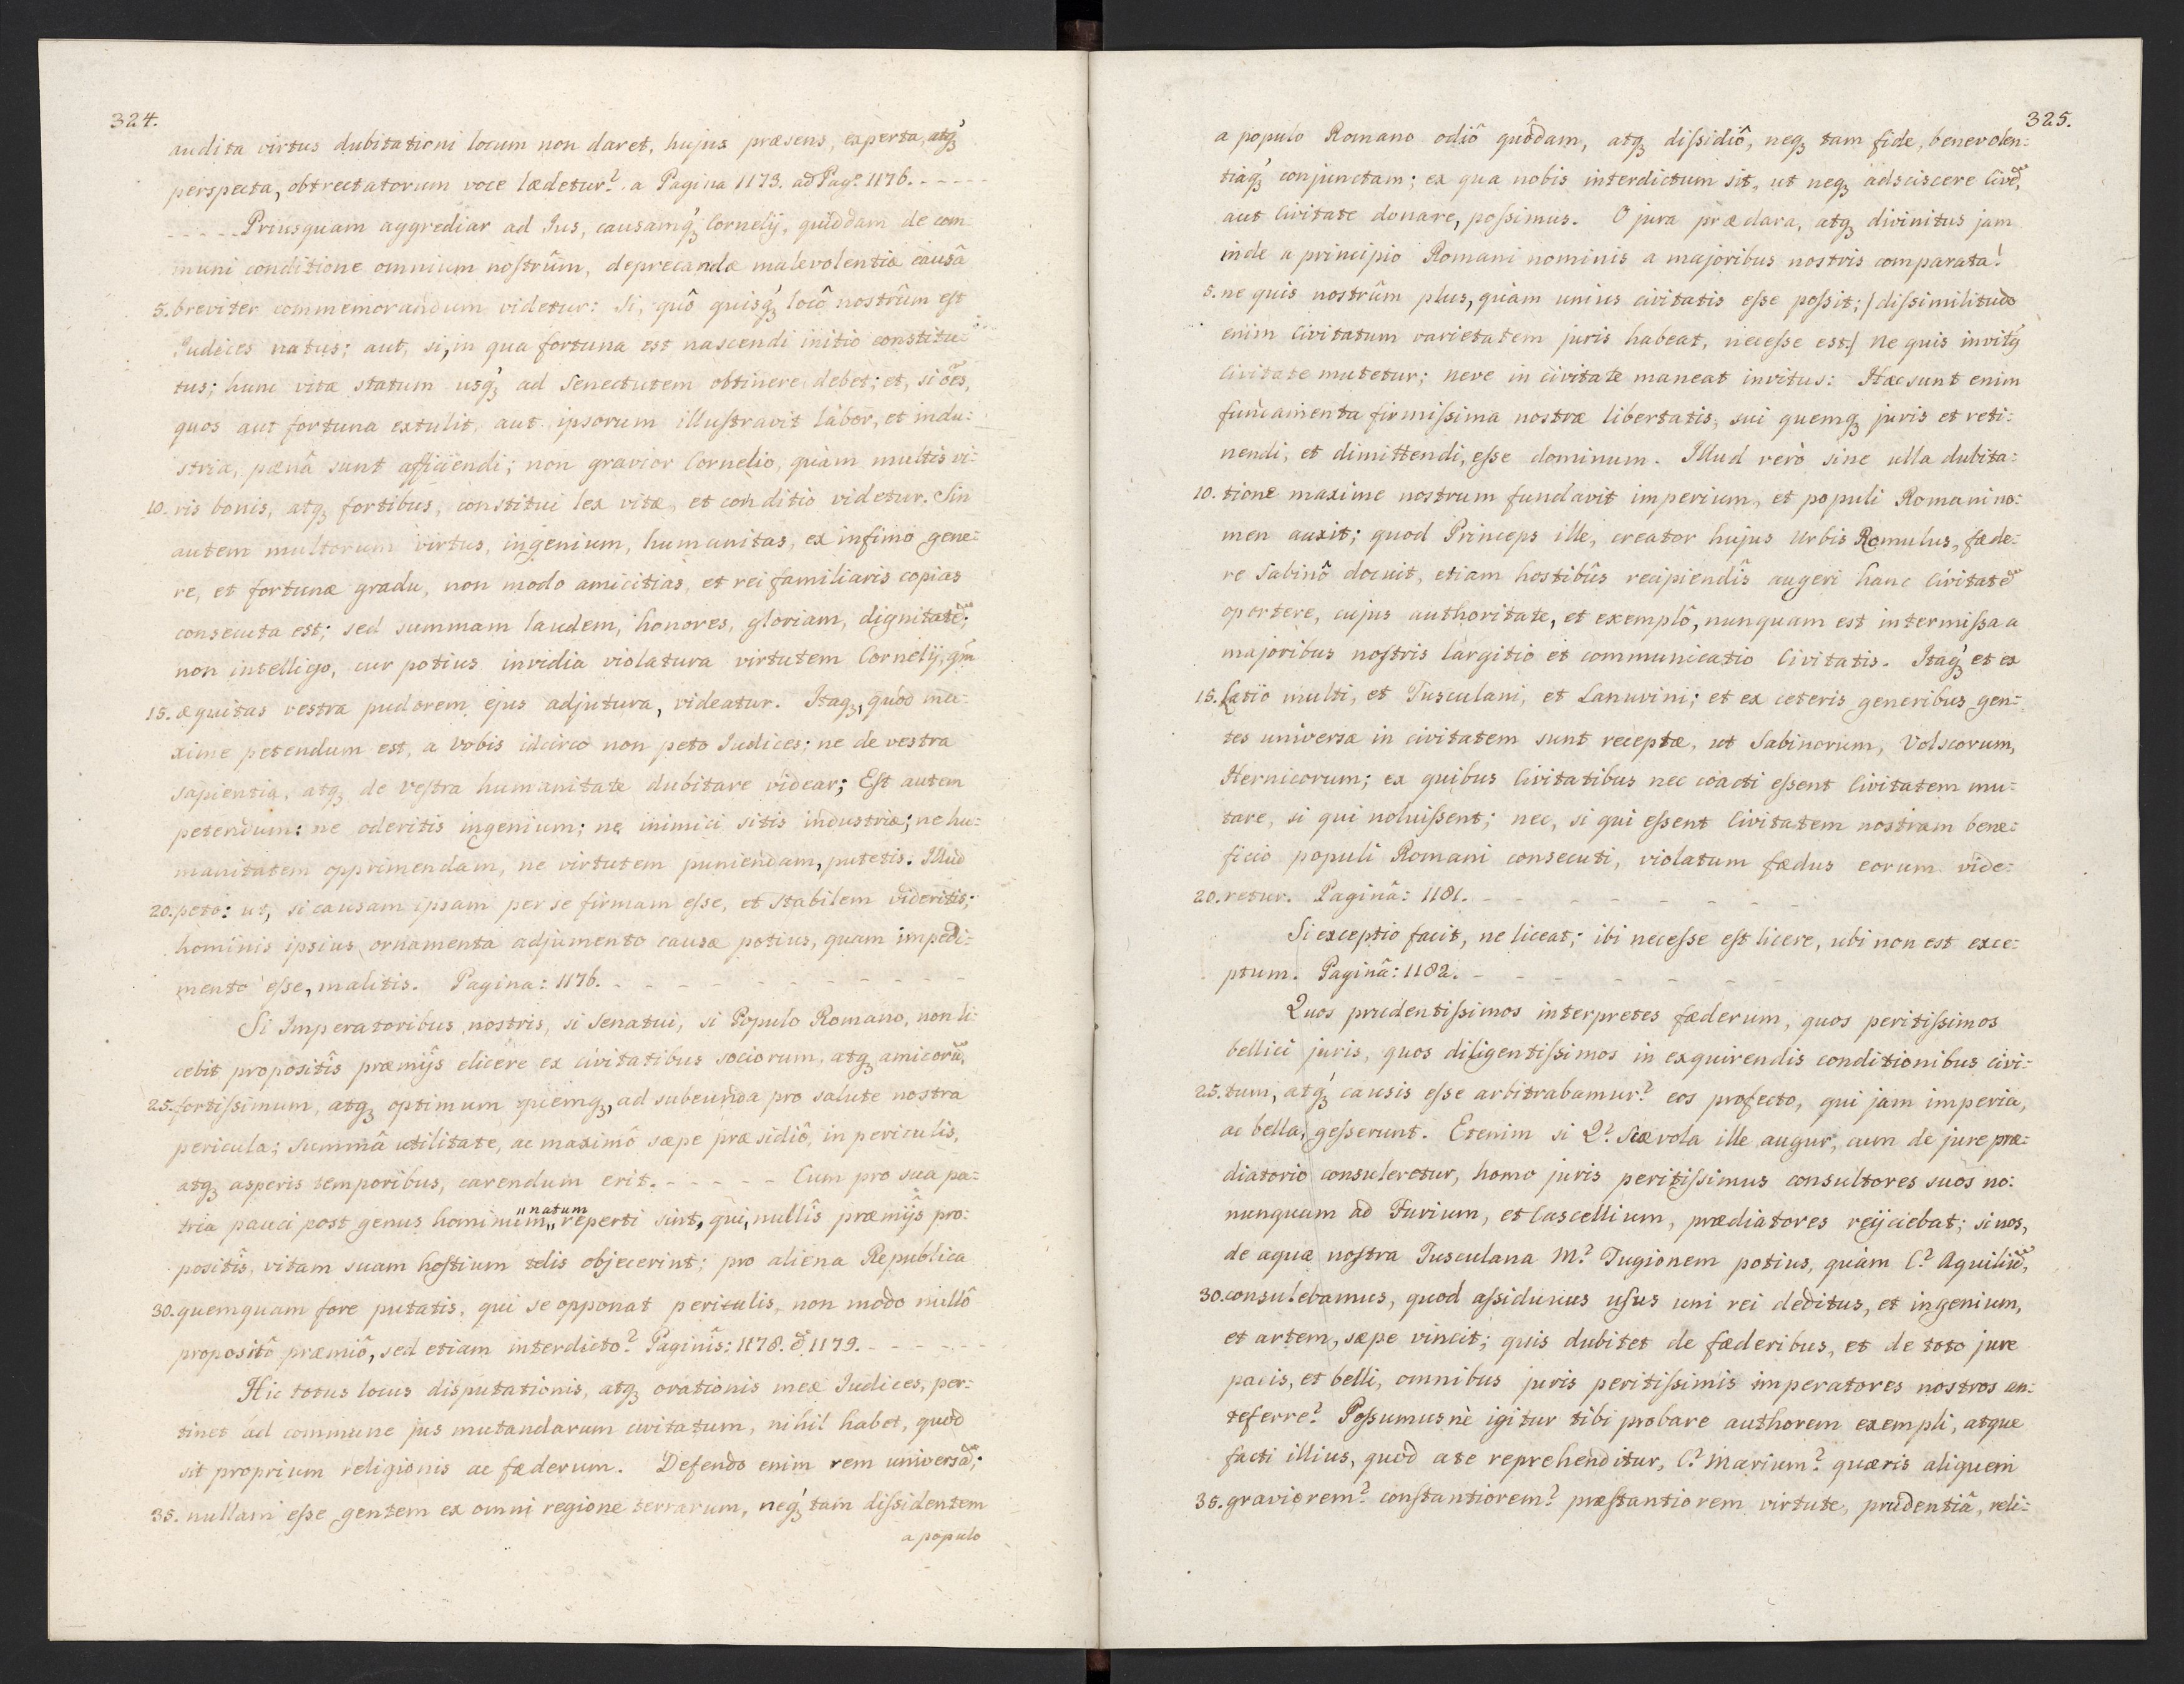 324.
audita virtus dubitationi locum non daret, hujus præsens, experta, atq́ꝫ
perspecta, obtrectatorum voce lædetur? a Pagina 1173. ad Pag: 1176. - - - - -
- - - - - Priusquam aggrediar ad Jus, causamq́ꝫ Cornelij, quiddam de com-
muni conditione omnium nostrûm, deprecandæ malevolentiæ causâ
5. breviter commemorandum videtur: Si, quô quisq́ꝫ locô nostrûm est
Judices natus; aut, si, in qua fortuna est nascendi initio constitu-
tus; hunc vitæ statum usq́ꝫ ad senectutem obtinere debet; et, si oẽs,
quos aut fortuna extulit, aut ipsorum illustravit labor, et indu-
stria, pænâ sunt afficiendi; non gravior Cornelio, quàm multis vi-
10. ris bonis, atqꝫ fortibus, constitui lex vitæ, et conditio videtur. Sin
autem multorum virtus, ingenium, humanitas, ex infimo gene-
re, et fortunæ gradu, non modo amicitias, et rei familiaris copias
consecuta est; sed summam laudem, honores, gloriam, dignitatẽ;
non intelligo, cur potius invidia violatura virtutem Cornelij, qm̃
15. æquitas vestra pudorem ejus adjutura, videatur. Itaqꝫ, quòd ma-
xime petendum est, a vobis idcirco non peto Judices; ne de vestra
sapientia, atqꝫ de vestra humanitate dubitare videar; Est autem
petendum: ne oderitis ingenium; ne inimici sitis industriæ; ne hu-
manitatem opprimendam, ne virtutem puniendam, putetis. Illud
20. peto: ut, si causam ipsam per se firmam esse, et stabilem videritis;
hominis ipsius ornamenta adjumento causæ potius, quam impedi-
mento esse, malitis. Pagina: 1176. - - - - - - - - - -
Si Imperatoribus nostris, si Senatui, si Populo Romano, non li-
cebit propositîs præmijs elicere ex civitatibus sociorum, atqꝫ amicorũ,
25. fortissimum, atqꝫ optimum quemqꝫ, ad subeunda pro salute nostra
pericula; summâ utilitate, ac maximô sæpe præsidiô, in periculis,
atqꝫ asperis temporibus, carendum erit. - - - - - Cum pro sua pa-
tria pauci post genus hominum "natum" reperti sint, qui, nullîs præmijs pro-
positîs, vitam suam hostium telis objecerint; pro aliena Republica
30. quemquam fore putatis, qui se opponat periculis, non modo nullô
propositô præmiô, sed etiam interdicto? Paginîs: 1178. & 1179. - - - - - -
Hic totus locus disputationis, atqꝫ orationis meæ Judices, per-
tinet ad commune jus mutandarum civitatum, nihil habet, quod
sit proprium religionis ac fæderum. Defendo enim rem universã;
35. nullam esse gentem ex omni regione terrarum, neq́ꝫ tam dissidentem
a populo
325.
a populo Romano odiô quôdam, atqꝫ dissidiô, neqꝫ tam fide, benevolen-
tiaq́ꝫ conjunctam; ex qua nobis interdictum sit, ut neqꝫ adsciscere Civẽ,
aut Civitate donare, possimus. O jura præclara, atqꝫ divinitus jam
inde a principio Romani nominis a majoribus nostris comparata!
5. ne quis nostrûm plus, quàm unius civitatis esse possit; /dissimilitudo
enim Civitatum varietatem juris habeat, necesse est/ Ne quis invitꝯ
Civitate mutetur; neve in civitate maneat invitus: Hæc sunt enim
fundamenta firmissima nostræ libertatis, sui quemqꝫ juris et reti-
nendi, et dimittendi, esse dominum. Illud verò sine ulla dubita-
10. tione maxime nostrum fundavit imperium, et populi Romani no-
men auxit; quod Princeps ille, creator hujus Urbis Romulus, fæde-
re Sabinô docuit, etiam hostibûs recipiendîs augeri hanc Civitatẽ
oportere, cujus authoritate, et exemplô, nunquam est intermissa a
majoribus nostris largitio et communicatio Civitatis. Itaq́ꝫ et ex
15. Latio multi, et Tusculani, et Lanuvini; et ex ceteris generibus gen-
tes universæ in civitatem sunt receptæ, ut Sabinorum, Volscorum,
Hernicorum; ex quibus Civitatibus nec coacti essent Civitatem mu-
tare, si qui noluissent; nec, si qui essent Civitatem nostram bene-
ficio populi Romani consecuti, violatum fædus eorum vide-
20. retur. Paginâ: 1181. - - - - - - - - -
Si exceptio facit, ne liceat; ibi necesse est licere, ubi non est exce-
ptum. Paginâ: 1182. - - - - - - - - -
Quos prudentissimos interpretes fæderum, quos peritissimos
bellici juris, quos diligentissimos in exquirendis conditionibus civi-
25. tum, atq́ꝫ causis esse arbitrabamur? eos profecto, qui jam imperia,
ac bella, gesserunt. Etenim si Q? Scævola ille augur, cum de jure præ-
diatorio consuleretur, homo juris peritissimus consultores suos no-
nunquam ad Furium, et Cascellium, prædiatores reijciebat; si nos,
de aqua nostra Tusculana M? Tugionem potius, quàm C? Aquiliũ,
30. consulebamus, quod assiduuus usus uni rei deditus, et ingenium,
et artem, sæpe vincit; quis dubitet de fæderibus, et de toto jure
pacis, et belli, omnibus juris peritissimis imperatores nostros an-
teferre? Possumusnè igitur tibi probare authorem exempli, atque
facti illius, quod a te reprehenditur, C? Marium? quæris aliquem
35. graviorem? constantiorem? præstantiorem virtute, prudentiâ, reli-